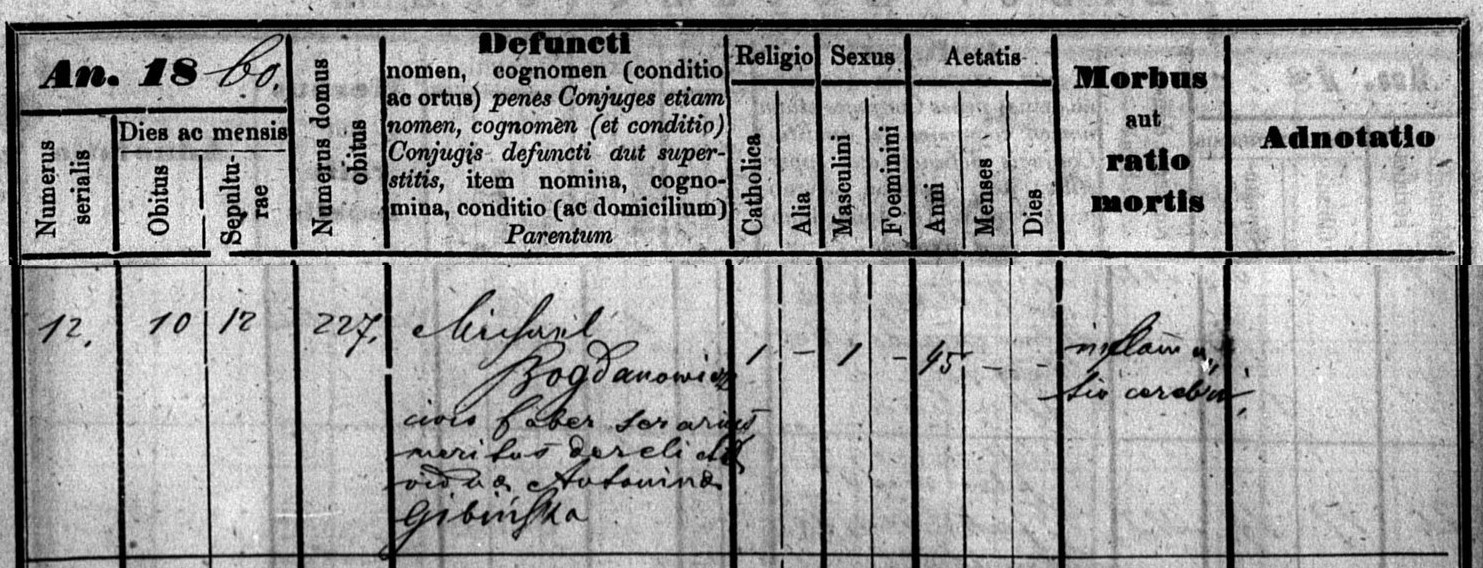 An. 18 60.
Numerus serialis
Dies ac mensis
Obitus
Sepulturae
Numerus domus obitus
Defuncti
nomen, cognomen (conditio
ac ortus) penes Conjuges etiam
nomen, cognomen (et conditio)
Conjugis defuncti aut super-
stitis, item nomina, cogno-
mina, conditio (ac domicilium)
Parentum
Religio
Catholica
Alia
Sexus
Masculini
Foeminini
Aetatis
Anni
Menses
Dies
Morbus
aut
ratio
mortis
Adnotatio
12. 10 12 227. Michael
Bogdanowicz 1 - 1 - 45 - - inflama
civis faber serarius tio cerebri
meritus derelicta
vidua Antonina
Gibińska